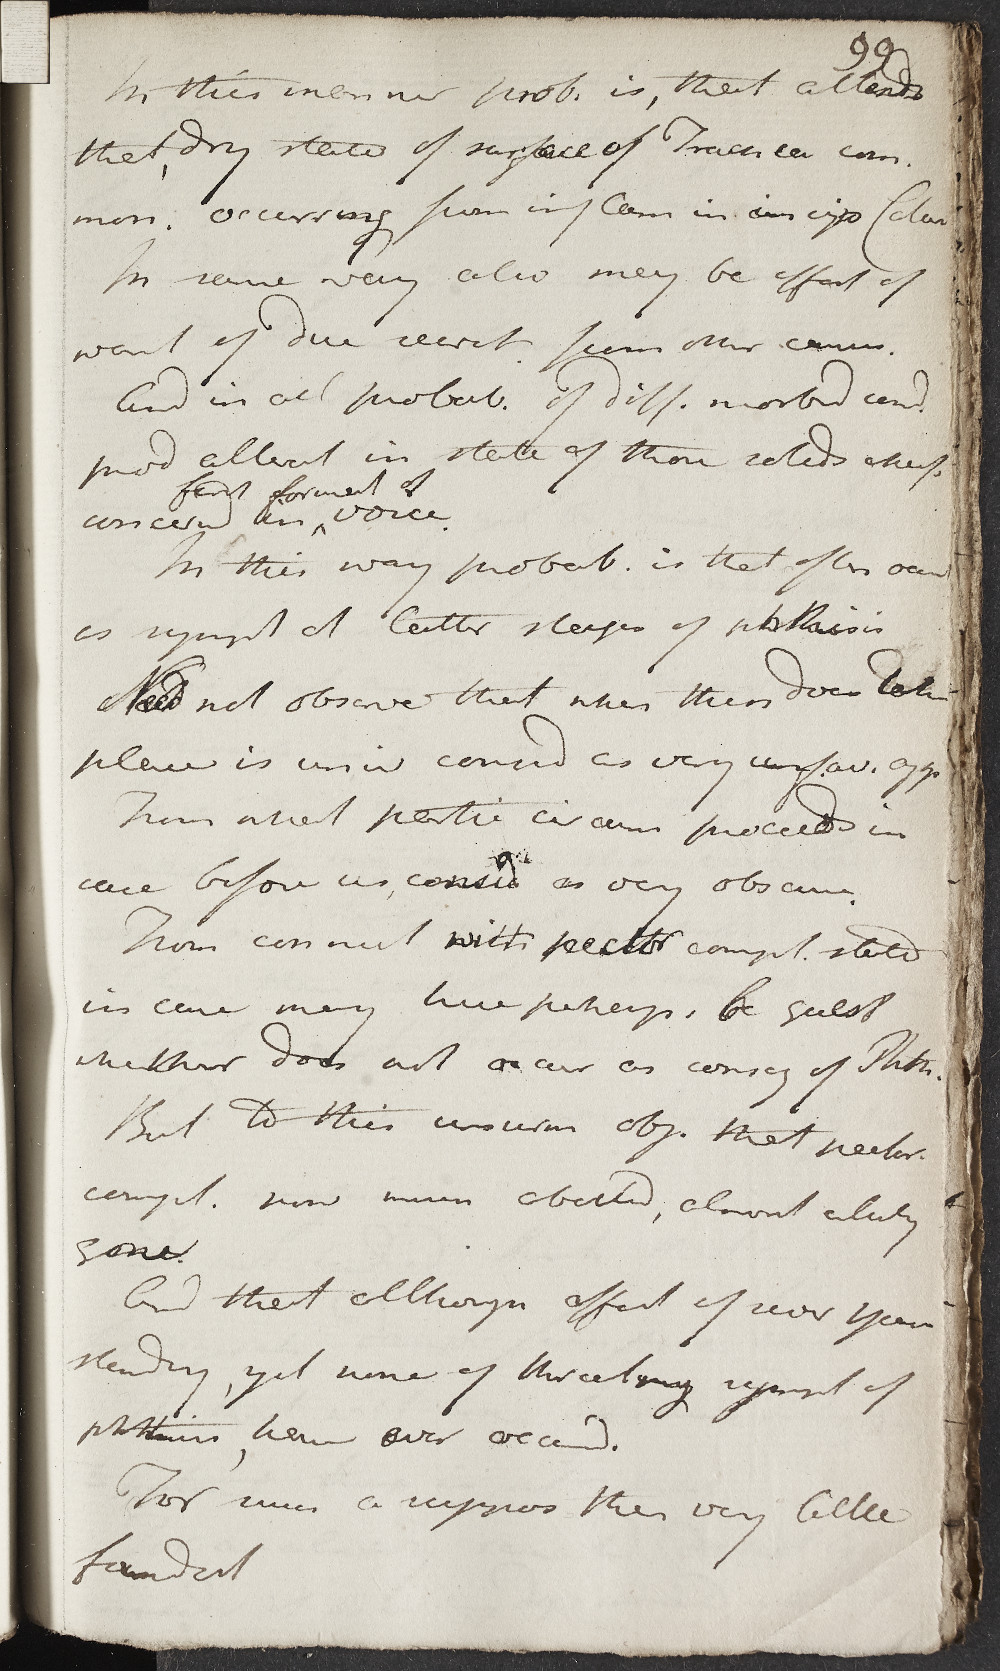 99
In this manner prob. is, that attends
that, dry state of surface of Trachea com.
mon. occurring from inflam in incip Catar
In same way also may be effect of
want of due secret. from other causes.
And in all probab. of diff. morbid cond.
prod alterat in state of those solids chief.
fact format of
concernd in ‸ voice.
In this way probab. is that often occur
as sympt at latter stages of phthisis
Need not observe that when there does take
place is univ consid as very unfav. app
From what partic circum proceeds in
case before us, consid as very obscure.
From connect with pector compl. stated
in case may here perhaps, be quest
whether does not occur as conseq of Phth.
But to this insurm obj. that pector.
compl. now much abated, almost entirely
gone.
And that although affect of sever years
standing, yet none of threatning sympt of
phthisis, have ever occurd.
For such a suppos then very little
foundat